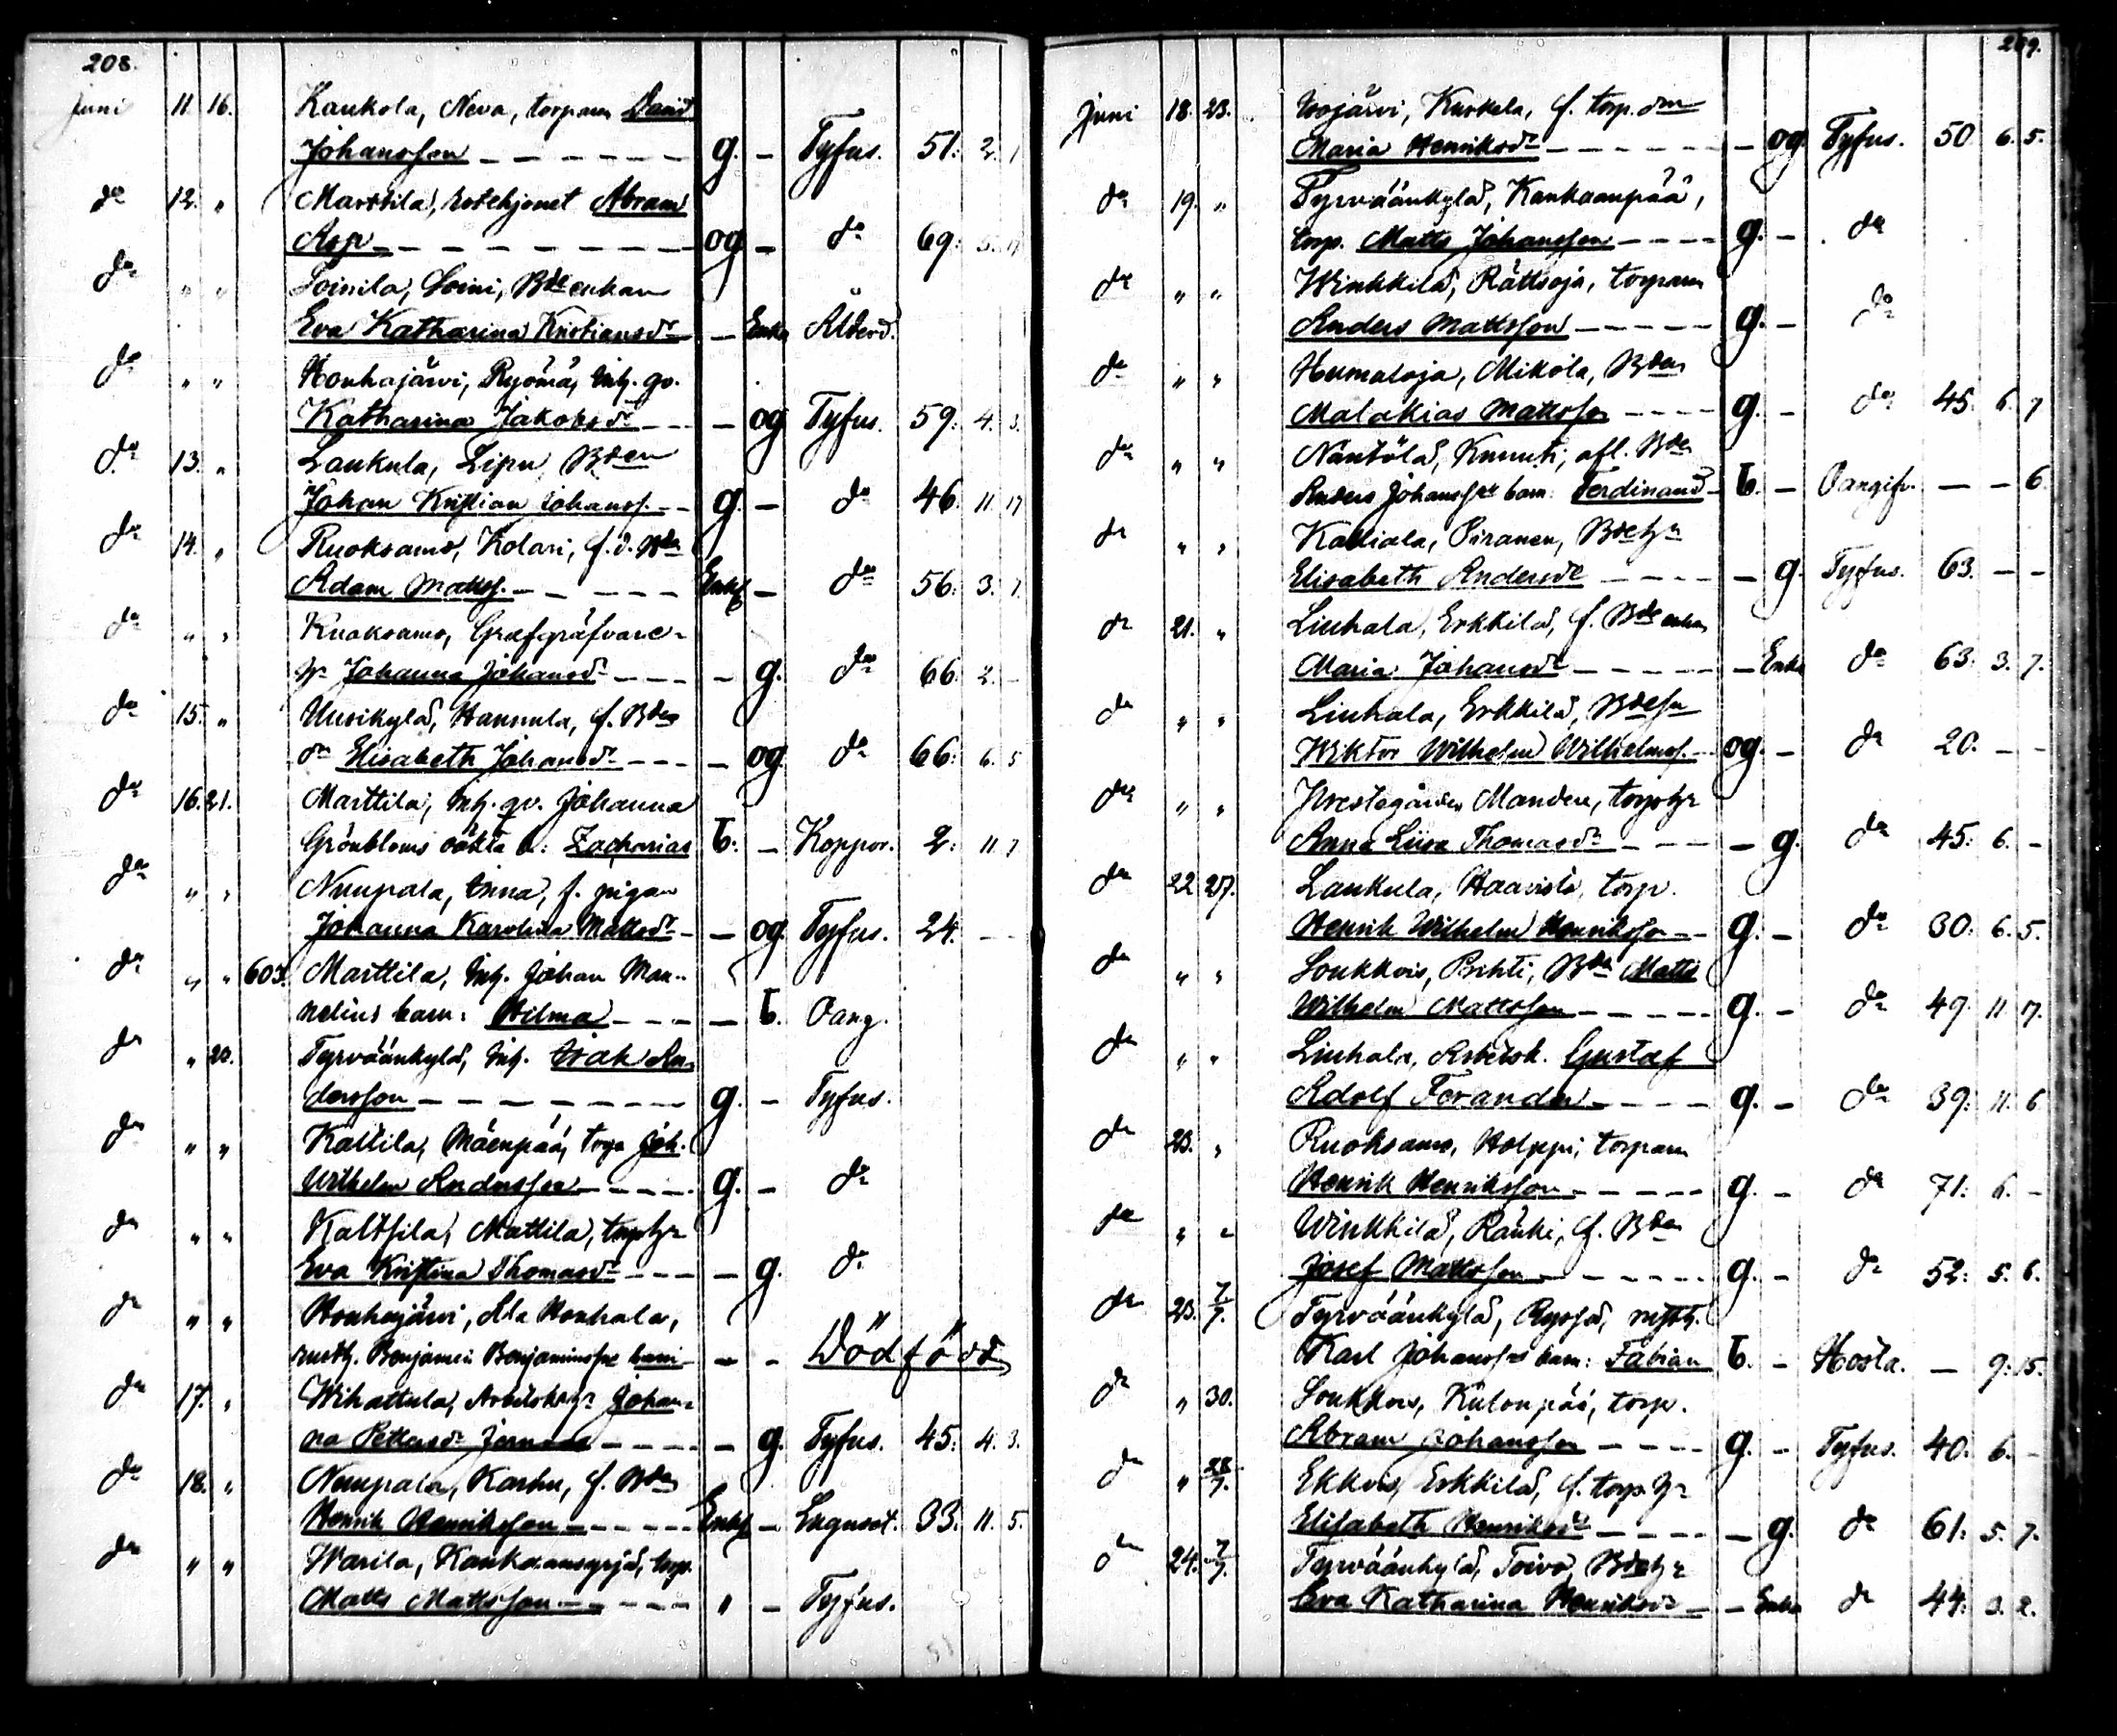 208.
Juni 11 16. Kaukola, Neva, torparen David
Johansson — — — — — — g. — Tyfus. 51. 2. 1
do 12. " Marttila, rotehjonet Abram
Asp — — — — — — og — do 69. 5.
do " " Soinila, Soini, Bde enkan
Eva Katharina Kristiansdr — Enka Ålderd.
do " " Honhajärvi, Ryömä, Inh. qv.
Katharina Jakobsdr — — — og Tyfus. 59. 4. 3.
do 13. " Laukula, Lipu, Bden
Johan Kristian Johanss. — — g. — do 46. 11. 17
do 14. " Ruoksamo, Kolari, f. d. Bden
Adam Matts. — — — — — Enkl — do 56. 3. 7.
do " " Ruoksamo, Grafgräfvare-
h. Johanna Johansdr — — — — g. do 66. 2. —
do 15. " Uusikylä, Hannula, f. Bden
dr Elisabeth Johansdr — — — — og. do 66. 6. 5
do 16. 21. Marttila, Inh. qv. Johanna
Grönbloms oäkta b: Zacharias b. — Koppor. 2. 11. 7
do " " Nuupala, Anna, f. pigan
Johanna Karolina Mattsdr — — og. Tyfus. 24. — —
do " " 603. Marttila, Inh. Johan Man-
nelius barn: Hilma — — — — b. Oang.
do " 23. Tyrväänkylä, Inh. Isak An-
dersson — — — — — — — g. — Tyfus.
do " " Kallila, Mäenpää, torp Joh.
Wilhelm Andersson — — — — g. — do
do " " Kaltsila, Mattila, torph.
Eva Kristina Thomasdr — — — — g. do
do " " Honhajärvi, Ala Honhala,
rusth. Benjamin Benjaminss barn — — Dödfödd
do 17. " Wihattula, Arbetskh. Johan-
na Pettersdr — — — — — g. Tyfus. 45. 4. 3.
do 18. " Nuupala, Karhu, f. Bden
Henrik Henriksson — — — — Enkl — Lugnsot. 33. 11. 5.
do " " Warila, torp.
Matts Mattsson — — — — " — Tyfus.
209.
Juni 18. 23. Isojärvi, Kurkela, f. torp. dr
Maria Henriksdr — — — — — — og Tyfus. 50 6. 5.
do 19. " Tyrväänkylä, Kankaanpää,
torp. Matts Johansson — — — — g. — do
do " " Winkkilä, Rättsoja, torparen
Anders Mattsson — — — — — g. — do
do " " Humaloja, Mikola, Bden
Malakias Mattsson — — — — g. — do 45. 6. 7
do " " Näntölä, Knuuti, afl. Bden
Anders Johanss barn: Ferdinand — b. — Oangifv. — — 6.
do " " Kalliala, Piranen, Bdeh.
Elisabeth Andersdr — — — — — g. Tyfus. 63. — —
do 21. " Liuhala, Erkkilä, f. Bde enkan
Maria Johansdr — — — — — — Enka do 63. 3. 7.
do " " Liuhala, Erkkilä, Bdeson
Wiktor Wilhelm Wilhelmss. — og. — do 20. — —
do " " Prestegården Mandere, torph.
Anna Liisa Thomasdr — — — — g. do 45. 6. —
do 22 27. Laukula, Haavisto, torp.
Henrik Wilhelm Henriksson — — g. — do 30. 6. 5.
do " " Soukkois, Prihti, Bden Matts
Wilhelm Mattsson — — — — — g. — do 49. 11. 17.
do " " Liuhala, Arbetsk. Gustaf
Adolf Ferander — — — — g. — do 39. 11. 6
do 23. " Ruoksamo, Holppi, torparen
Henrik Henriksson — — — — — g. — do 71. 6. —
do " " Winkkilä, Ränki, f. Bden
Josef Mattsson — — — — — g. — do 52. 5. 6.
do 23. 7/7. Tyrväänkylä, Ryssä, rusth.
Karl Johanss barn: Fabian b. — Hosta. — 9. 15.
do " 30. Soukkois, Kulonpää, torp.
Abram Johansson — — — — g. — Tyfus. 40. 6. —
do " 28/7. Ekkois, Erkkilä, f. torp. h.
Elisabeth Henriksdr — — — — — g. do 61. 5. 7.
do 24. 7/7. Tyrväänkylä, Toivo, Bdeh.
Eva Katharina Henriksdr — — Enka do 44. 3. 2.